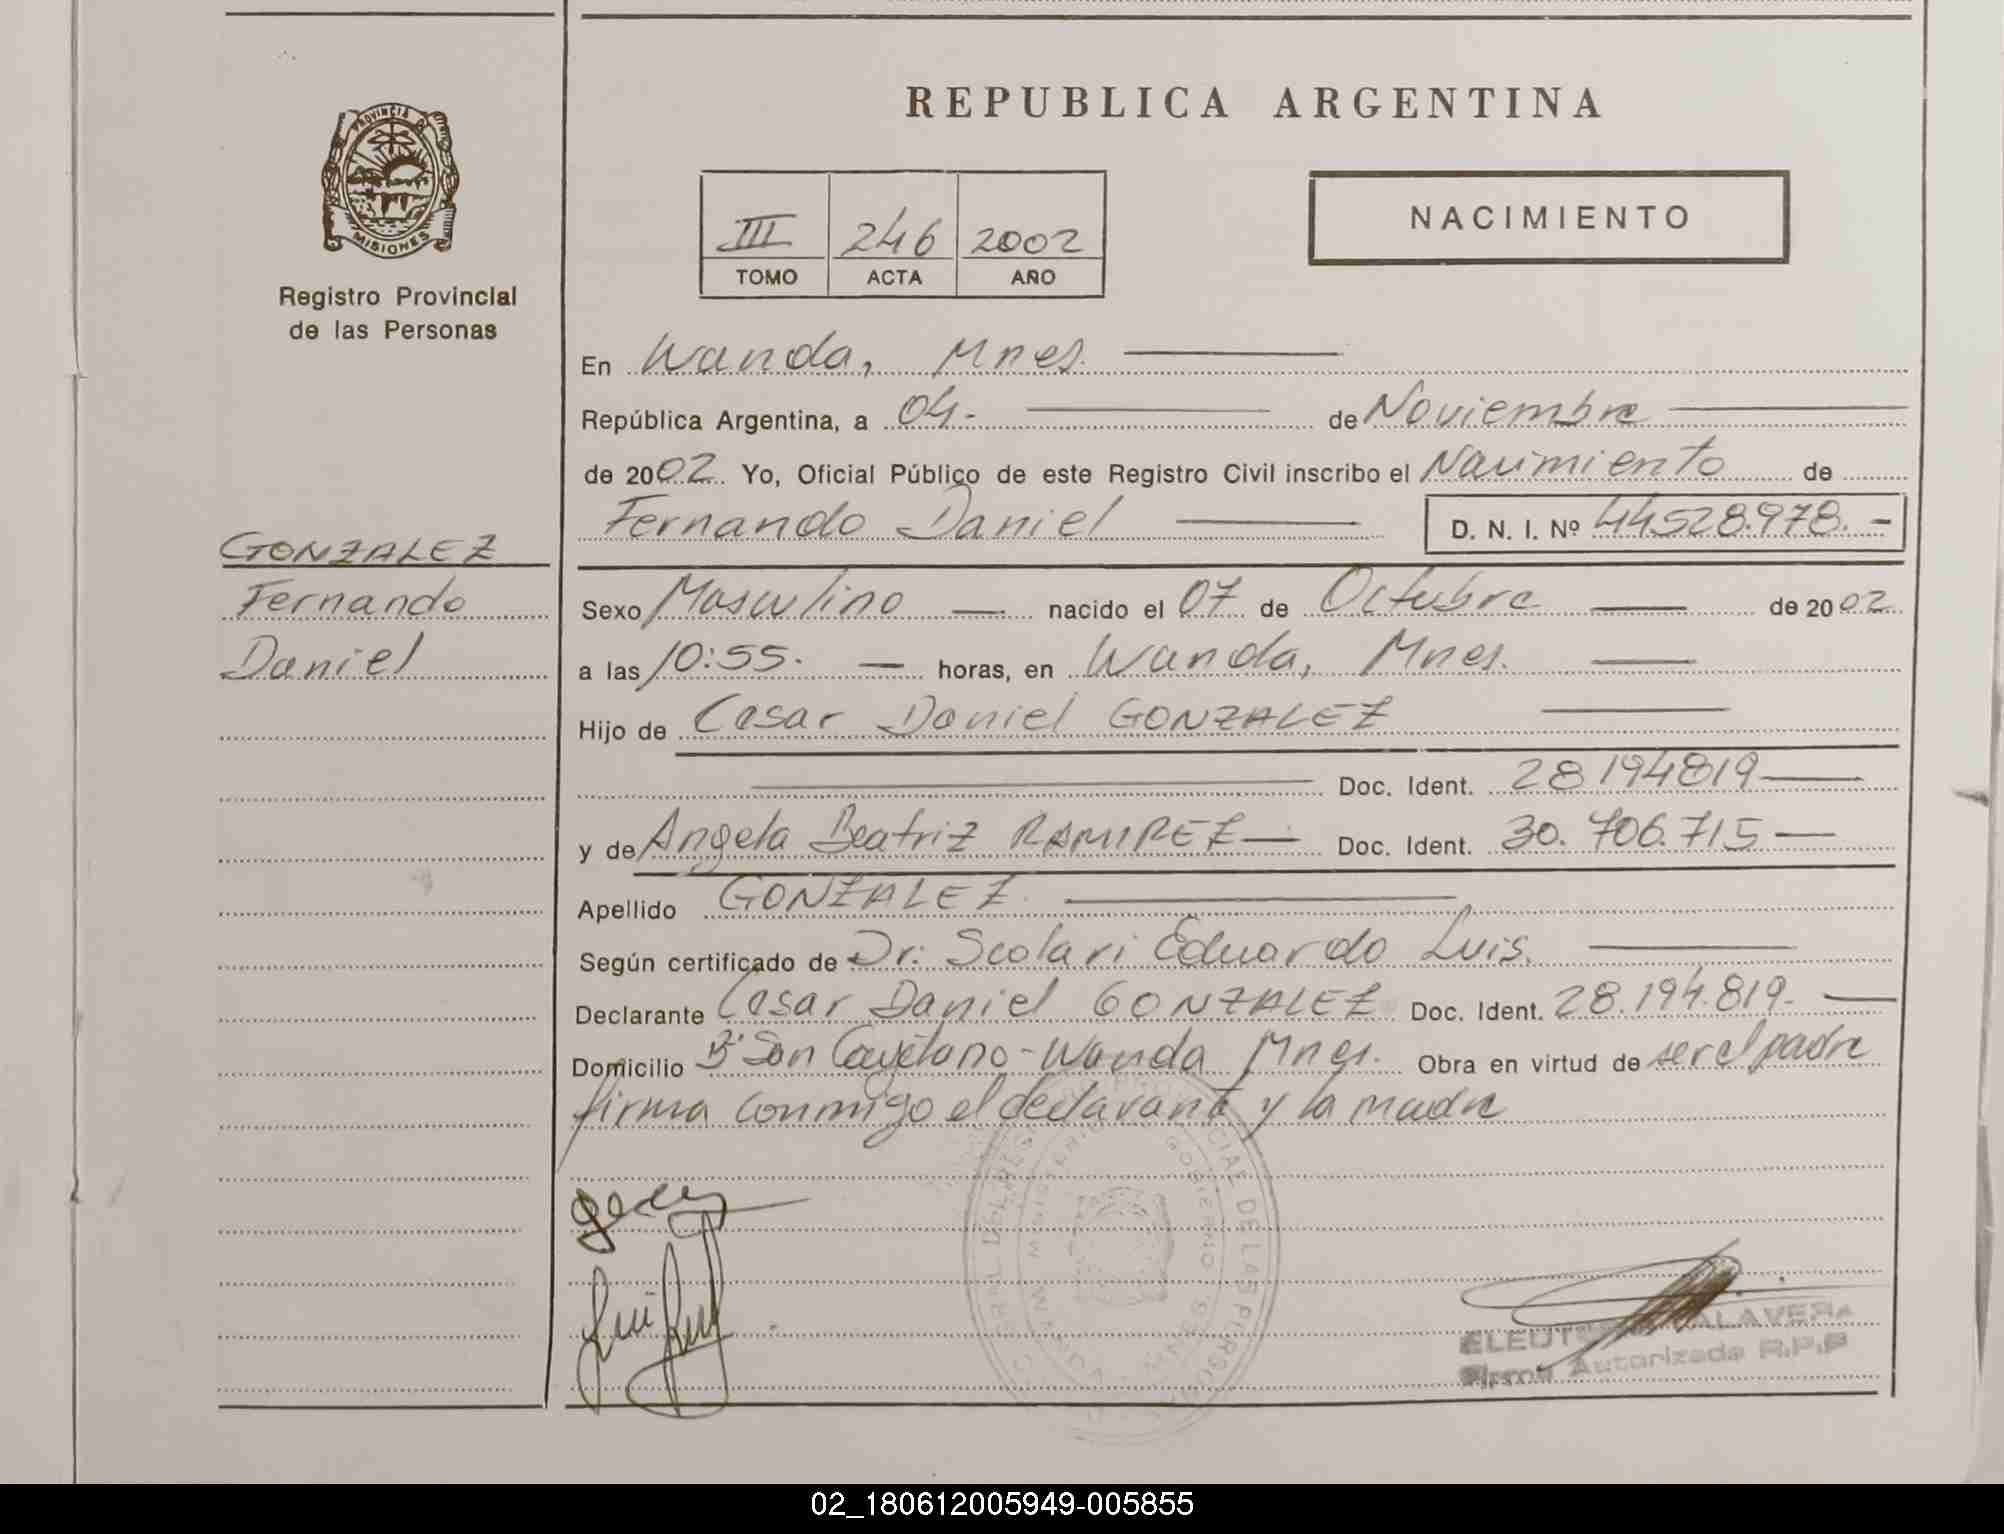 REPUBLICA ARGENTINA
PROVINCIA DE
MISIONES
Registro Provincial
de las Personas
III 246 2002
TOMO ACTA AÑO
NACIMIENTO
En Wanda, Mnes.
República Argentina, a 04.- de Noviembre
de 2002. Yo, Oficial Público de este Registro Civil inscribo el Nacimiento de
Fernando Daniel D. N. I. Nº 44528.978.-
GONZALEZ
Fernando
Daniel
Sexo Masculino nacido el 07 de Octubre de 2002
a las 10:55. horas, en Wanda, Mnes.
Hijo de Cesar Daniel GONZALEZ
Doc. Ident. 28194819
y de Angela Beatriz RAMIREZ Doc. Ident. 30.706.715
Apellido GONZALEZ
Según certificado de Dr: Scolari Eduardo Luis.
Declarante Cesar Daniel GONZALEZ Doc. Ident. 28.194.819.
Domicilio Bº San Cayetano - Wanda Mnes. Obra en virtud de ser el padre
firma conmigo el declarante y la madre
DE LAS PERSONAS
Firma Autorizada R.P.P
02_180612005949-005855